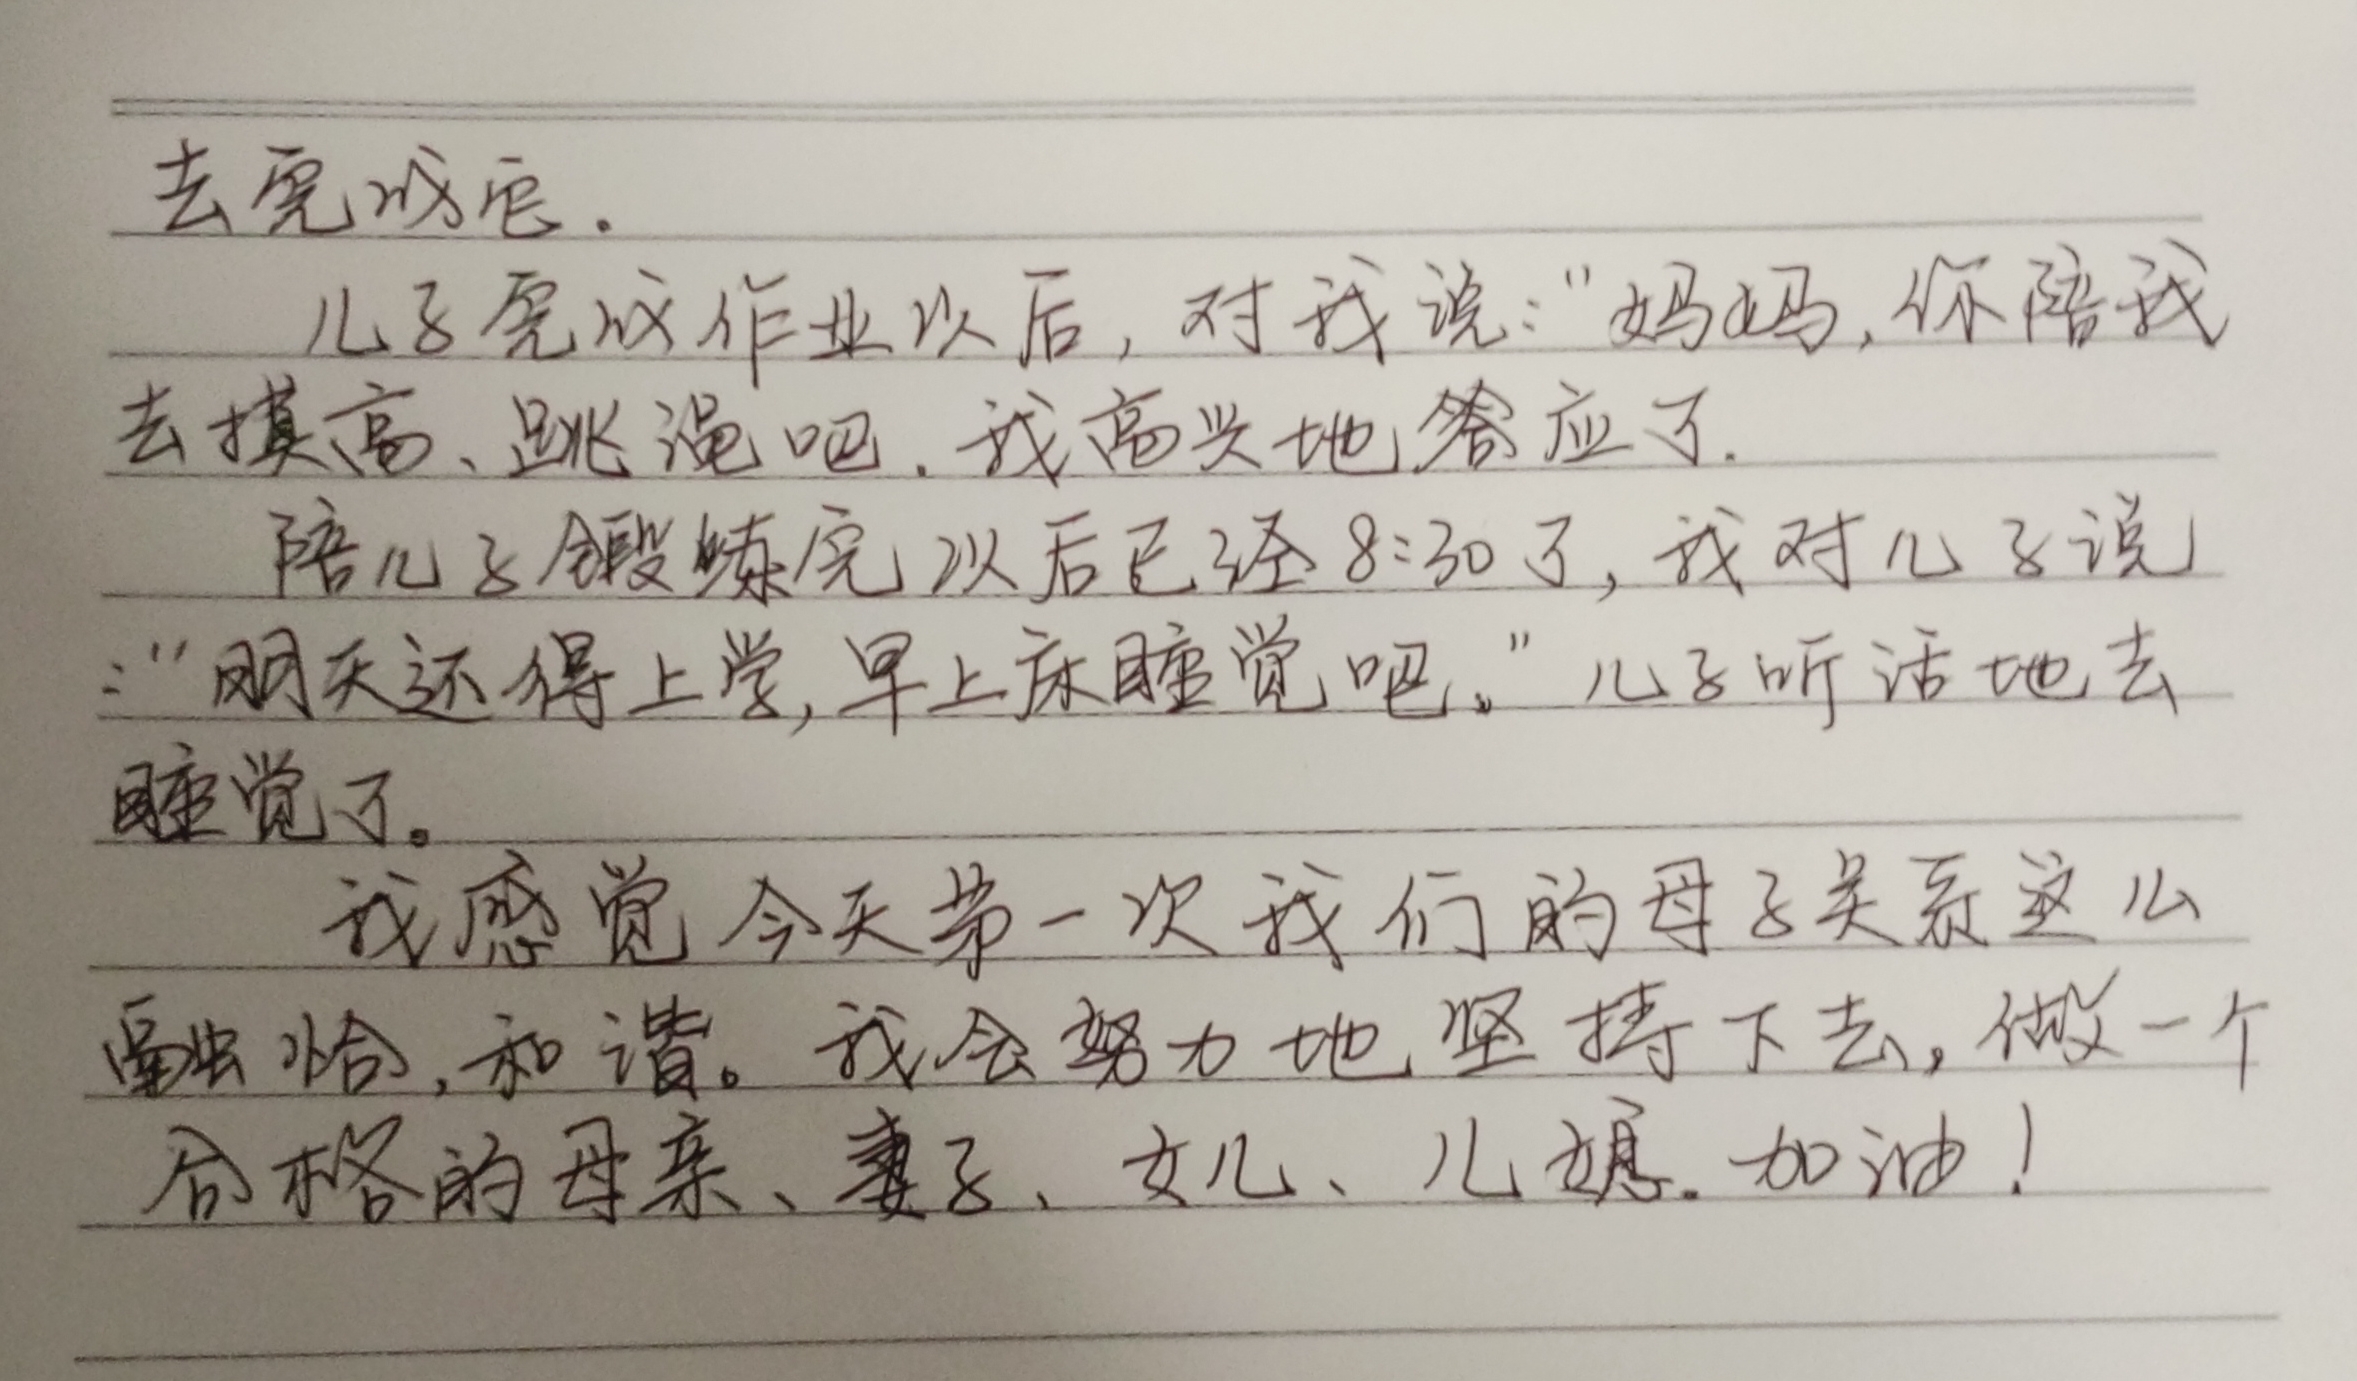 去完成它.
儿子完成作业以后,对我说:"妈妈,你陪我
去摸高、跳绳吧.我高兴地答应了.
陪儿子锻炼完以后已经8:30了,我对儿子说
:"明天还得上学,早上床睡觉吧。"儿子听话地去
睡觉了。
我感觉今天第一次我们的母子关系这么
融恰,和谐。我会努力地坚持下去,做一个
合格的母亲、妻子、女儿、儿媳.加油!